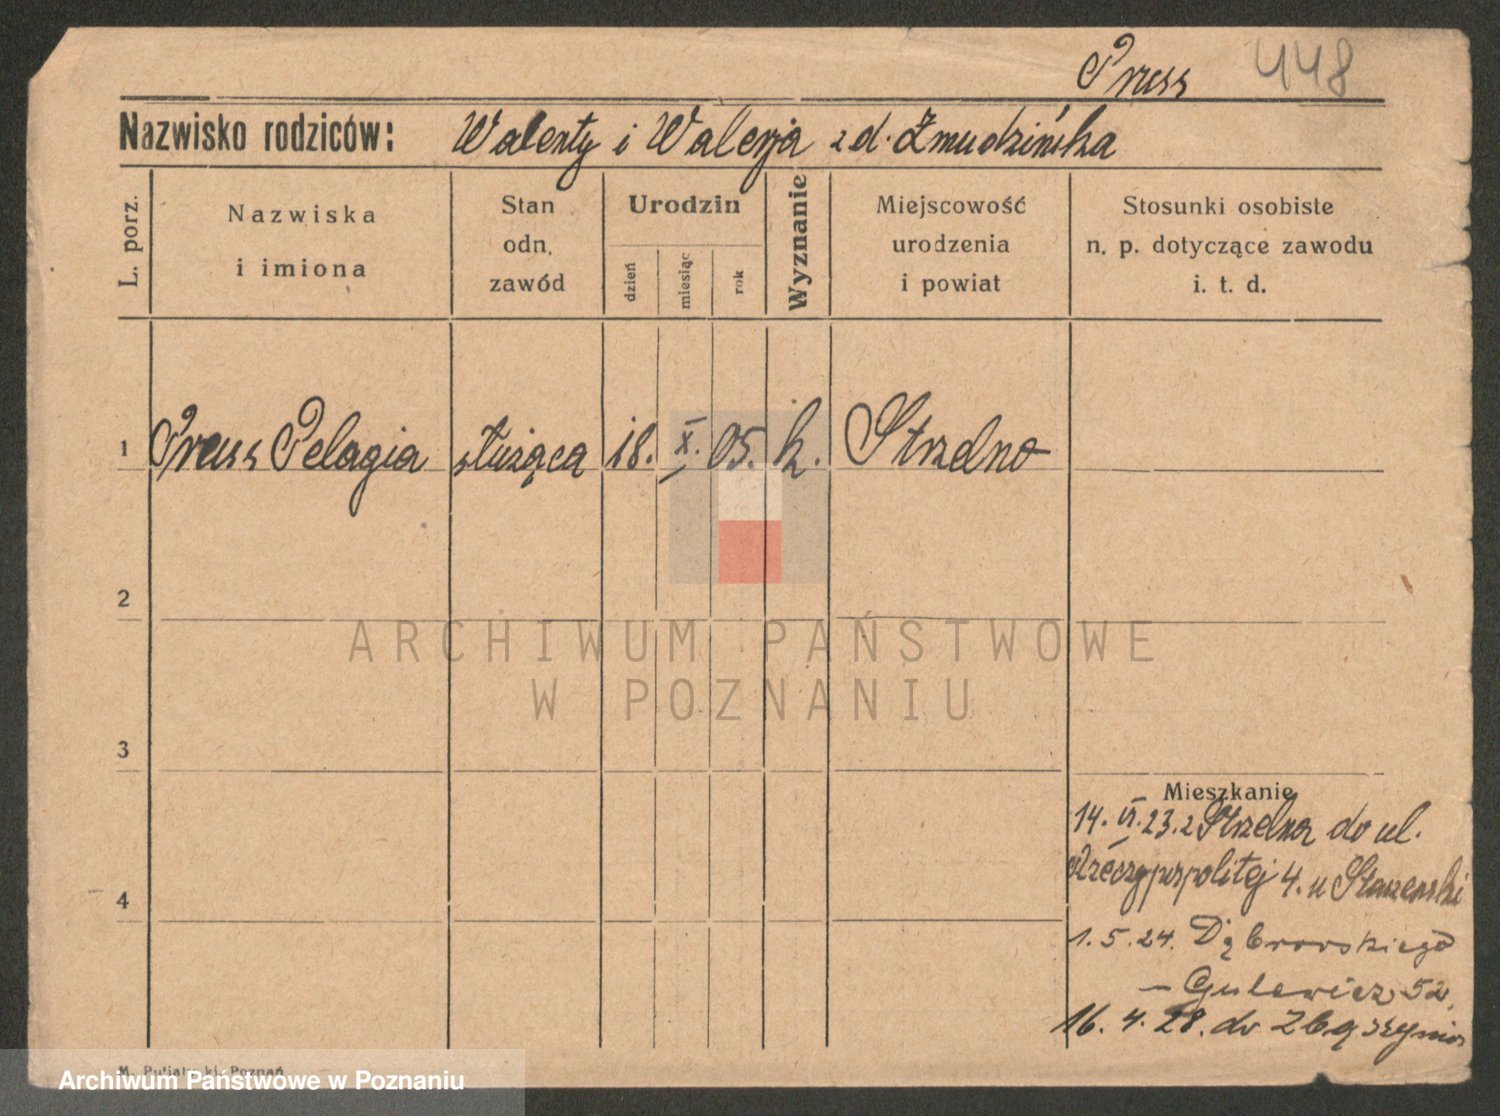 Pruss 448
Nazwisko rodziców: Walenty i Walerja z d. Żmudzińska
L. porz.
Nazwiska
i imiona
Stan
odn.
zawód
Urodzin
dzień
miesiąc
rok
Wyznanie
Miejscowość
urodzenia
i powiat
Stosunki osobiste
n. p. dotyczące zawodu
i. t. d.
1 Pruss Pelagia służąca 18. X. 05. k. Strzelno
2
ARCHIWUM PAŃSTWOWE
W POZNANIU
3
Mieszkanie
14. VI. 23. z Strzelna do ul.
Rzeczypospolitej 4. u
4
1. 5. 24. Dąbrowskiego
— Gulewicz, 52,
16. 4. 28. do Zbąszynia
Poznań
Archiwum Państwowe w Poznaniu